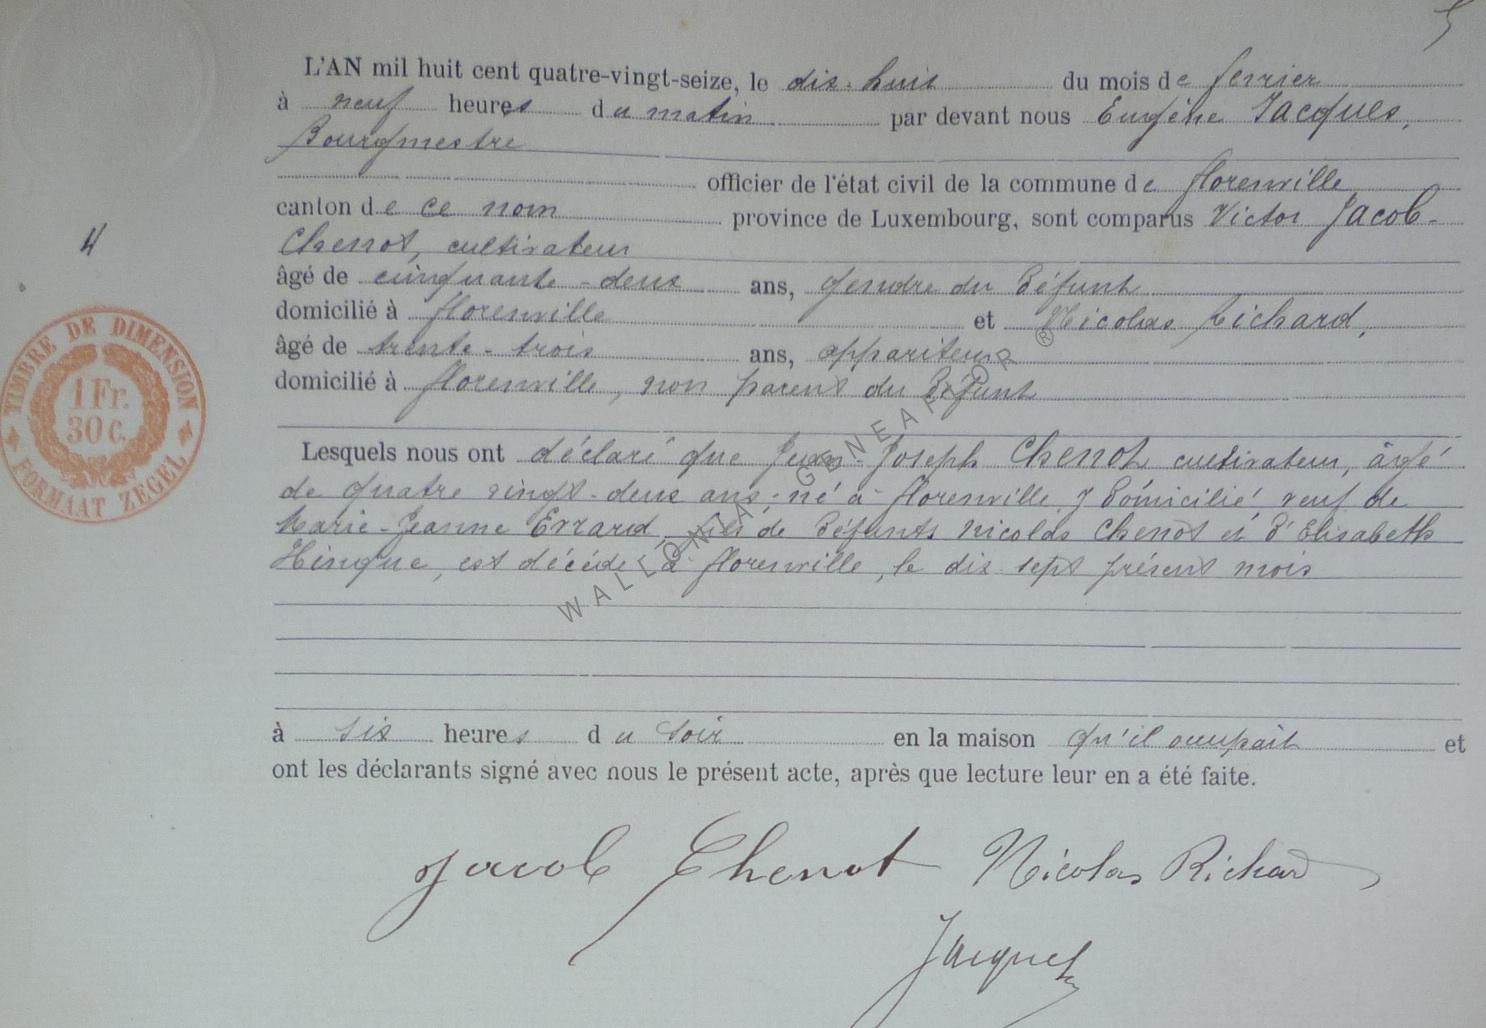 5
L'AN mil huit cent quatre-vingt-seize, le dix-huit du mois de février
à neuf heures du matin par devant nous Eugène Jacques,
Bourgmestre
officier de l'état civil de la commune de florenville
canton de ce nom province de Luxembourg, sont comparus Victor Jacob-
Chenot, cultivateur
4
âgé de cinquante-deux ans, gendre du défunt
domicilié à florenville et Nicolas Richard,
âgé de trente-trois ans, appariteur
domicilié à florenville, non parent du défunt
TIMBRE DE DIMENSION
1 Fr.
30 C.
FORMAAT ZEGEL
Lesquels nous ont déclaré que Jean-Joseph Chenot cultivateur, âgé
de quatre vingt-deux ans, né à florenville, y domicilié, veuf de
Marie-Jeanne Errard, fils de défunts Nicolas Chenot et d'Elisabeth
Hingue, est décédé à florenville, le dix sept présent mois
WALLONIA GENEAFOR ®
à six heures du soir en la maison qu'il occupait et
ont les déclarants signé avec nous le présent acte, après que lecture leur en a été faite.
Jacob Chenot Nicolas Richard
Jacques